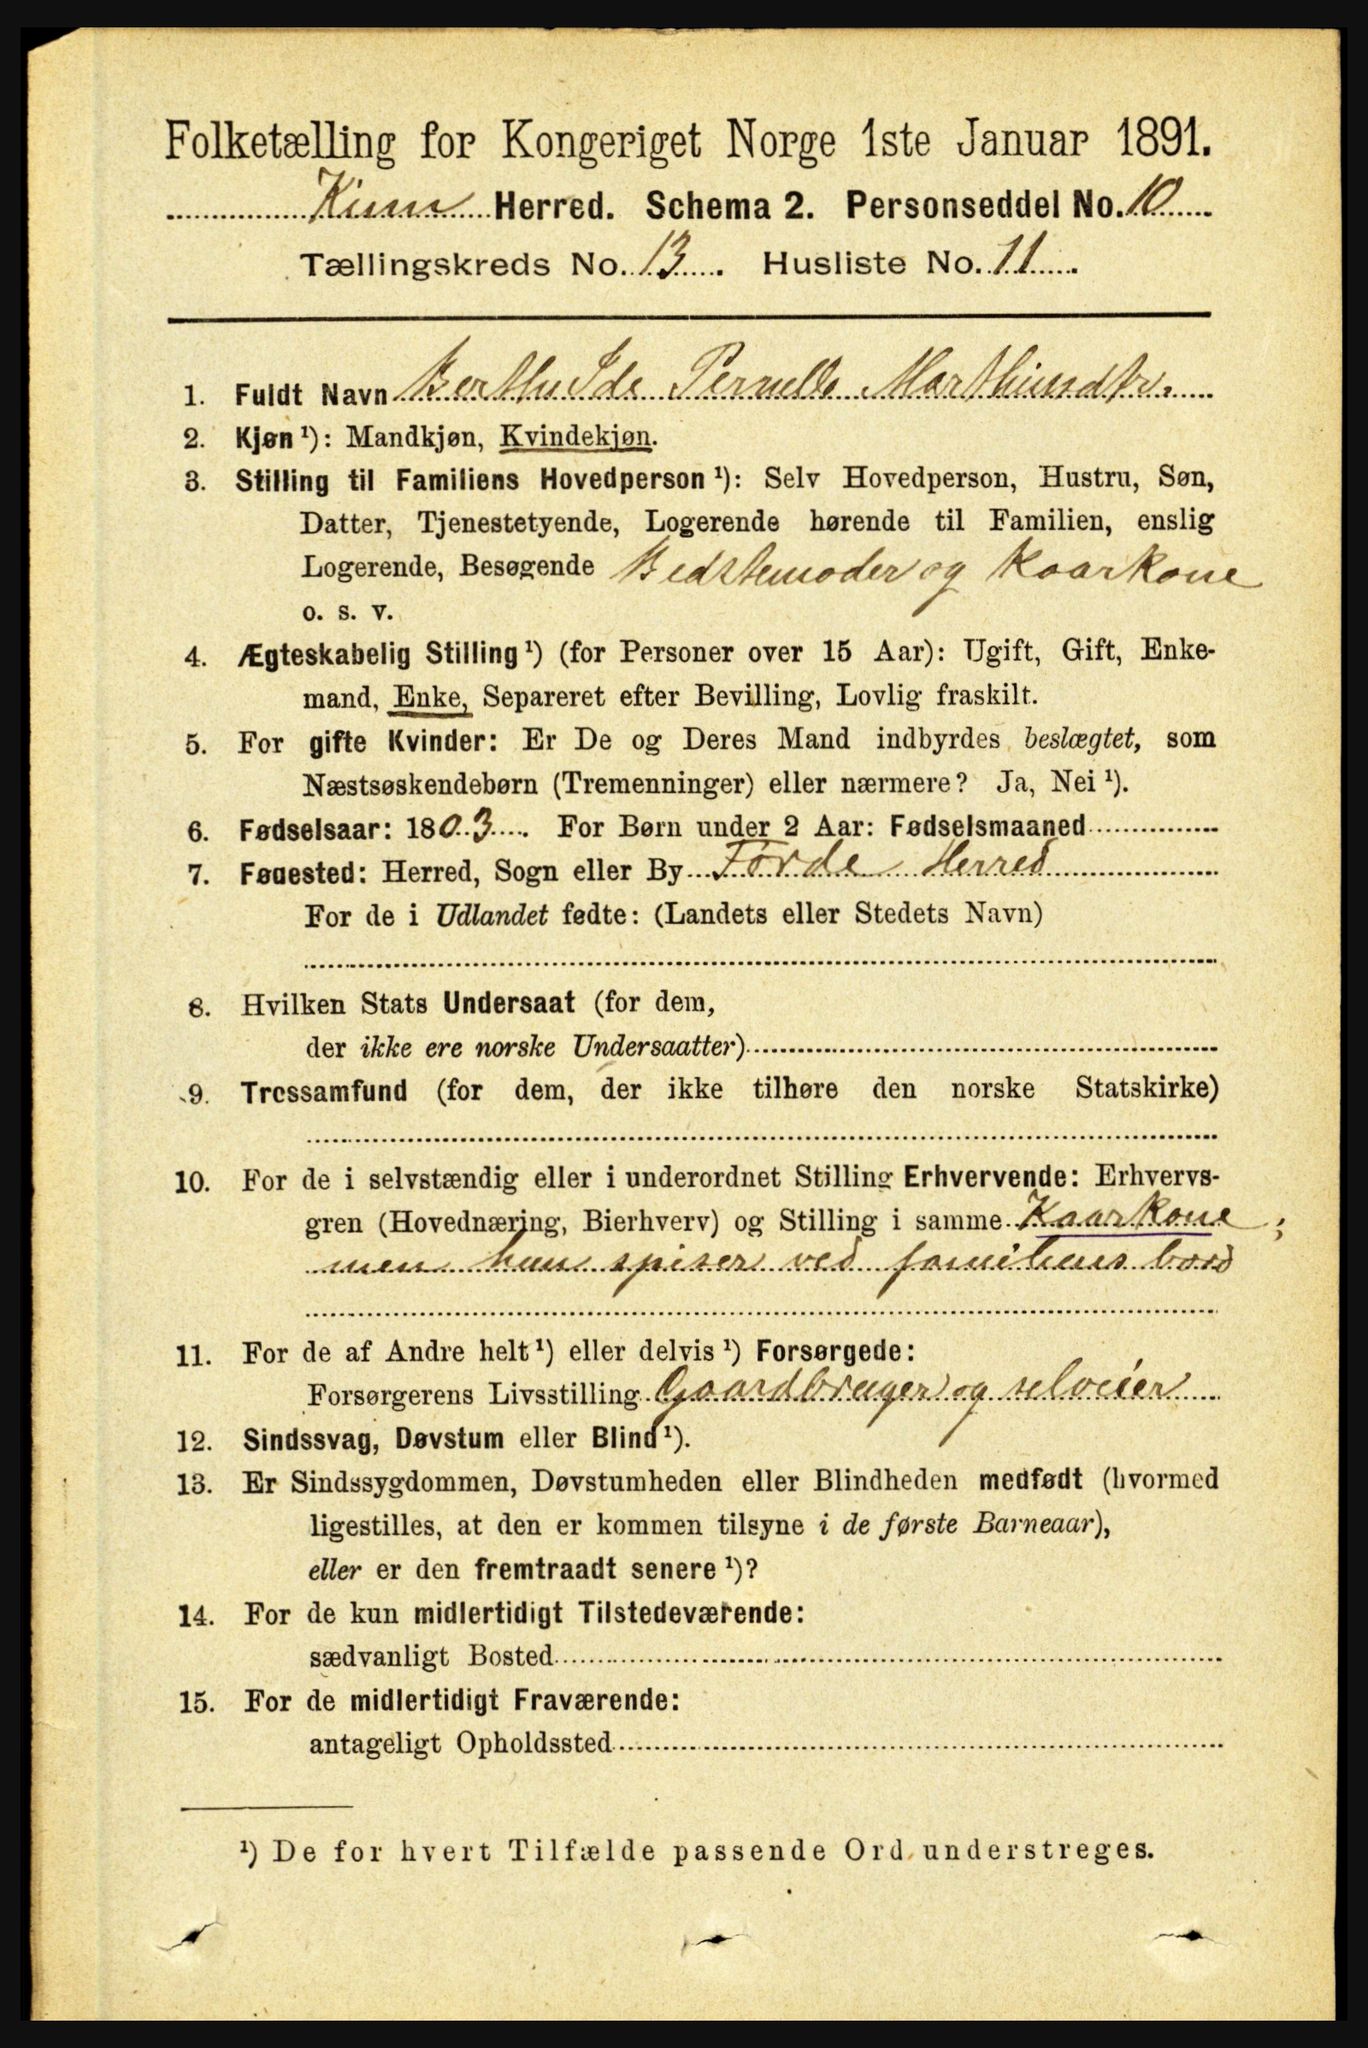 Folketælling for Kongeriget Norge 1ste Januar 1891.
Kinn Herred. Schema 2. Personseddel No. 10
Tællingskreds No. 13. Husliste No. 11.
1. Fuldt Navn Berthe Ide Pernelle Marthinusdtr.
2. Kjøn ¹): Mandkjøn, Kvindekjøn.
3. Stilling til Familiens Hovedperson ¹): Selv Hovedperson, Hustru, Søn,
Datter, Tjenestetyende, Logerende hørende til Familien, enslig
Logerende, Besøgende Bedstemoder og Kaarkone
o. s. v.
4. Ægteskabelig Stilling ¹) (for Personer over 15 Aar): Ugift, Gift, Enke-
mand, Enke, Separeret efter Bevilling, Lovlig fraskilt.
5. For gifte Kvinder: Er De og Deres Mand indbyrdes beslægtet, som
Næstsøskendebørn (Tremenninger) eller nærmere? Ja, Nei ¹).
6. Fødselsaar: 1803. For Børn under 2 Aar: Fødselsmaaned
7. Fødested: Herred, Sogn eller By Førde Herred
For de i Udlandet fødte: (Landets eller Stedets Navn)
8. Hvilken Stats Undersaat (for dem,
der ikke ere norske Undersaatter)
9. Trossamfund (for dem, der ikke tilhøre den norske Statskirke)
10. For de i selvstændig eller i underordnet Stilling Erhvervende: Erhvervs-
gren (Hovednæring, Bierhverv) og Stilling i samme Kaarkone;
men hun spiser ved familiens bord
11. For de af Andre helt ¹) eller delvis ¹) Forsørgede:
Forsørgerens Livsstilling Gaardbruger og selveier
12. Sindssvag, Døvstum eller Blind ¹).
13. Er Sindssygdommen, Døvstumheden eller Blindheden medfødt (hvormed
ligestilles, at den er kommen tilsyne i de første Barneaar),
eller er den fremtraadt senere ¹)?
14. For de kun midlertidigt Tilstedeværende:
sædvanligt Bosted
15. For de midlertidigt Fraværende:
antageligt Opholdssted
¹) De for hvert Tilfælde passende Ord understreges.